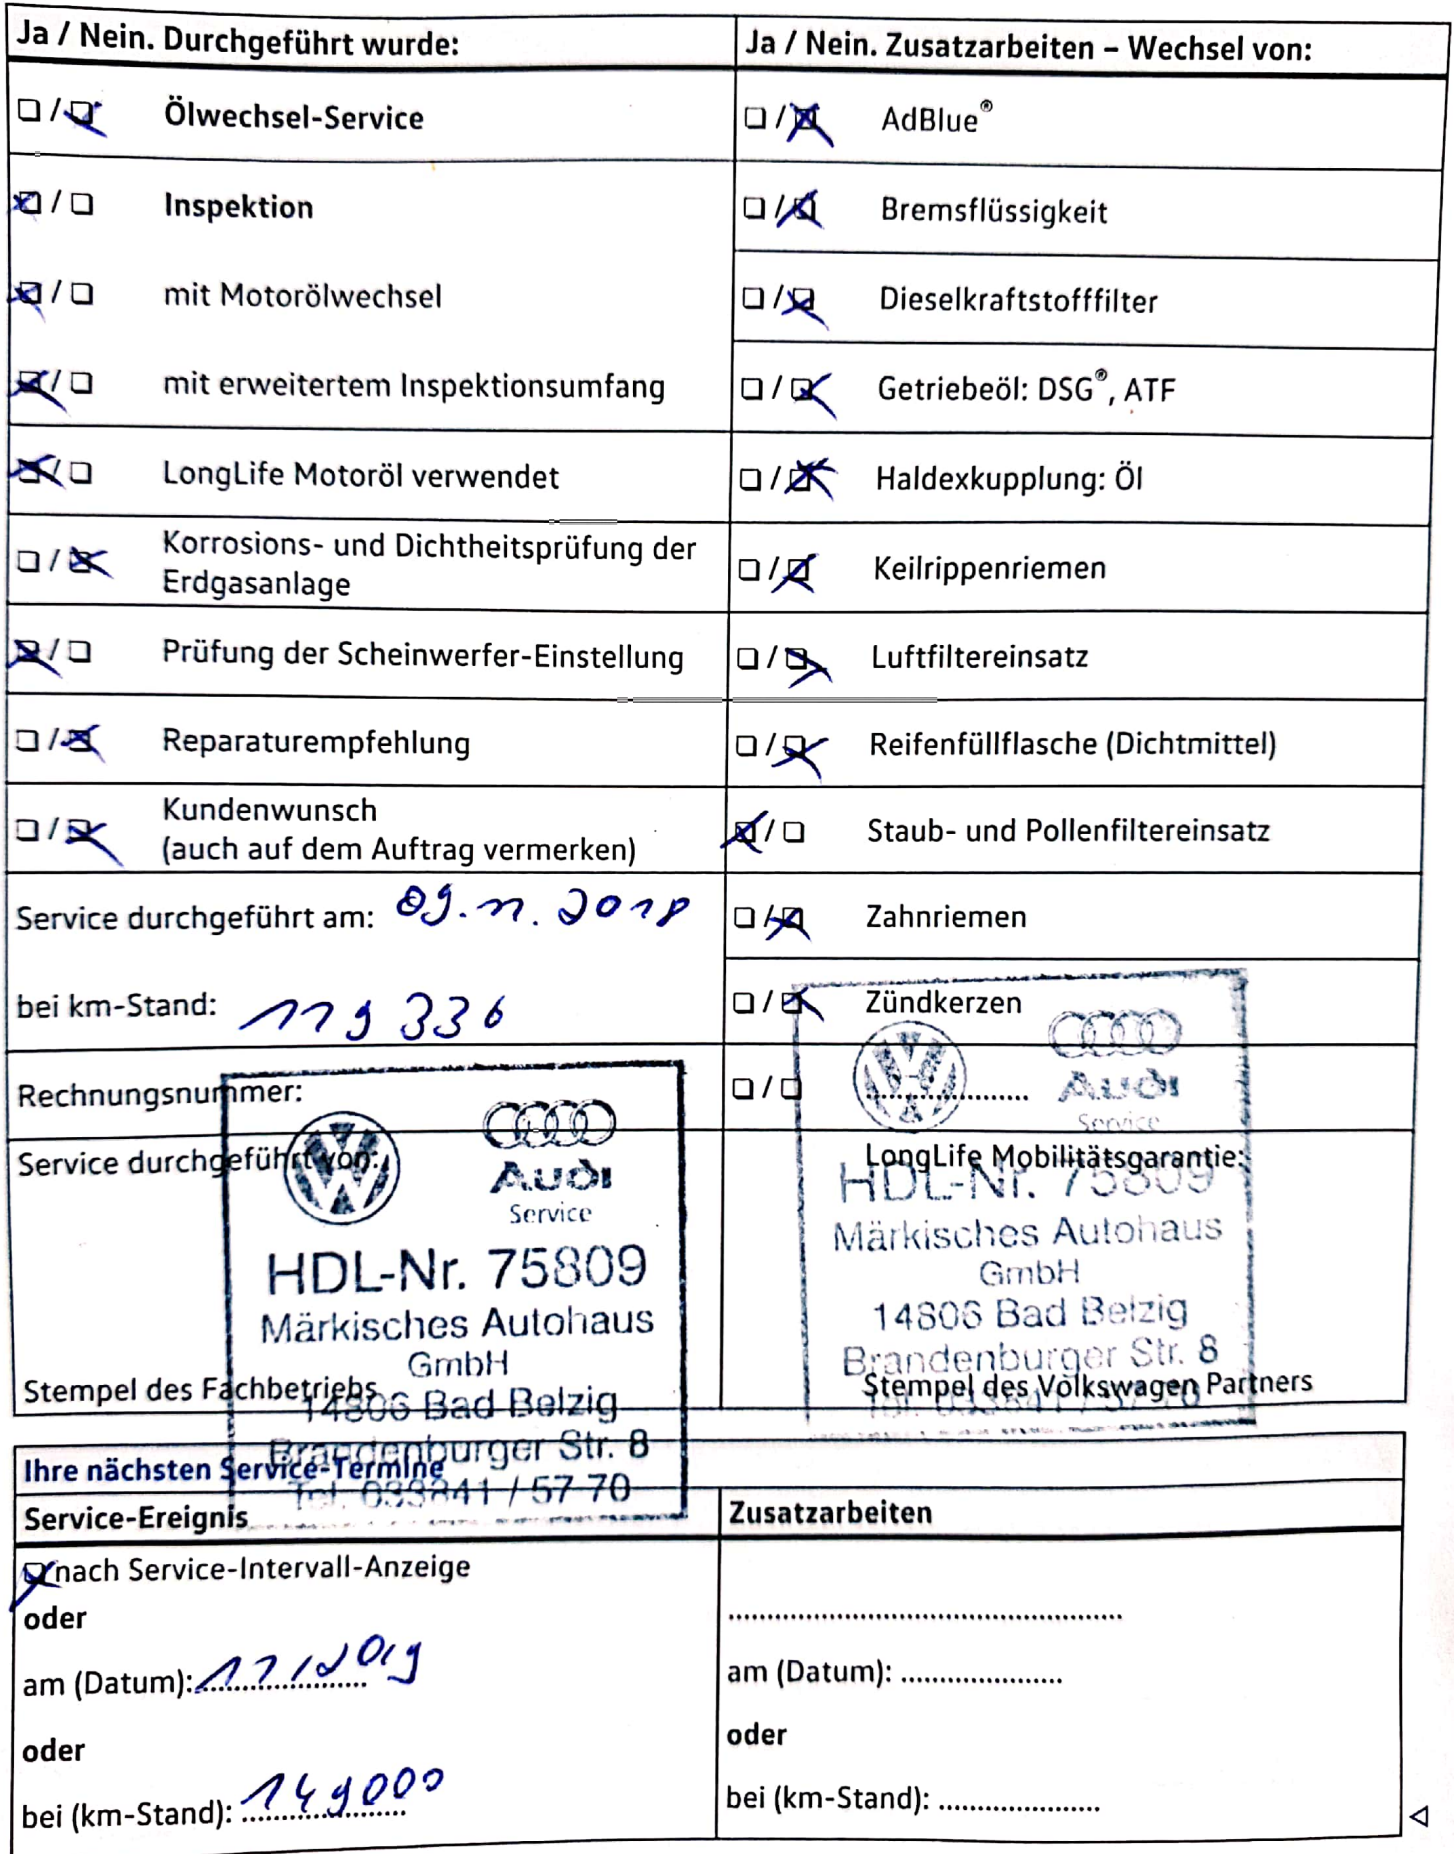 Ja / Nein. Durchgeführt wurde:
☐ / ☒ Ölwechsel-Service
☒ / ☐ Inspektion
☒ / ☐ mit Motorölwechsel
☒ / ☐ mit erweitertem Inspektionsumfang
☒ / ☐ LongLife Motoröl verwendet
☐ / ☒ Korrosions- und Dichtheitsprüfung der
Erdgasanlage
☒ / ☐ Prüfung der Scheinwerfer-Einstellung
☐ / ☒ Reparaturempfehlung
☐ / ☒ Kundenwunsch
(auch auf dem Auftrag vermerken)
Service durchgeführt am: 09.11.2018
bei km-Stand: 119 336
Rechnungsnummer:
Service durchgeführt von:
Audi
Service
HDL-Nr. 75809
Märkisches Autohaus
GmbH
14806 Bad Belzig
Brandenburger Str. 8
Tel. 033841 / 57 70
Stempel des Fachbetriebs
Ja / Nein. Zusatzarbeiten – Wechsel von:
☐ / ☒ AdBlue®
☐ / ☒ Bremsflüssigkeit
☐ / ☒ Dieselkraftstofffilter
☐ / ☒ Getriebeöl: DSG®, ATF
☐ / ☒ Haldexkupplung: Öl
☐ / ☒ Keilrippenriemen
☐ / ☒ Luftfiltereinsatz
☐ / ☒ Reifenfüllflasche (Dichtmittel)
☒ / ☐ Staub- und Pollenfiltereinsatz
☐ / ☒ Zahnriemen
☐ / ☒ Zündkerzen
☐ / ☐ ....................
LongLife Mobilitätsgarantie:
Audi
Service
HDL-Nr. 75809
Märkisches Autohaus
GmbH
14806 Bad Belzig
Brandenburger Str. 8
Tel. 033841 / 57 70
Stempel des Volkswagen Partners
Ihre nächsten Service-Termine
Service-Ereignis
☒ nach Service-Intervall-Anzeige
oder
am (Datum): 11/2019
oder
bei (km-Stand): 149000
Zusatzarbeiten
..................................................
am (Datum): ....................
oder
bei (km-Stand): ....................